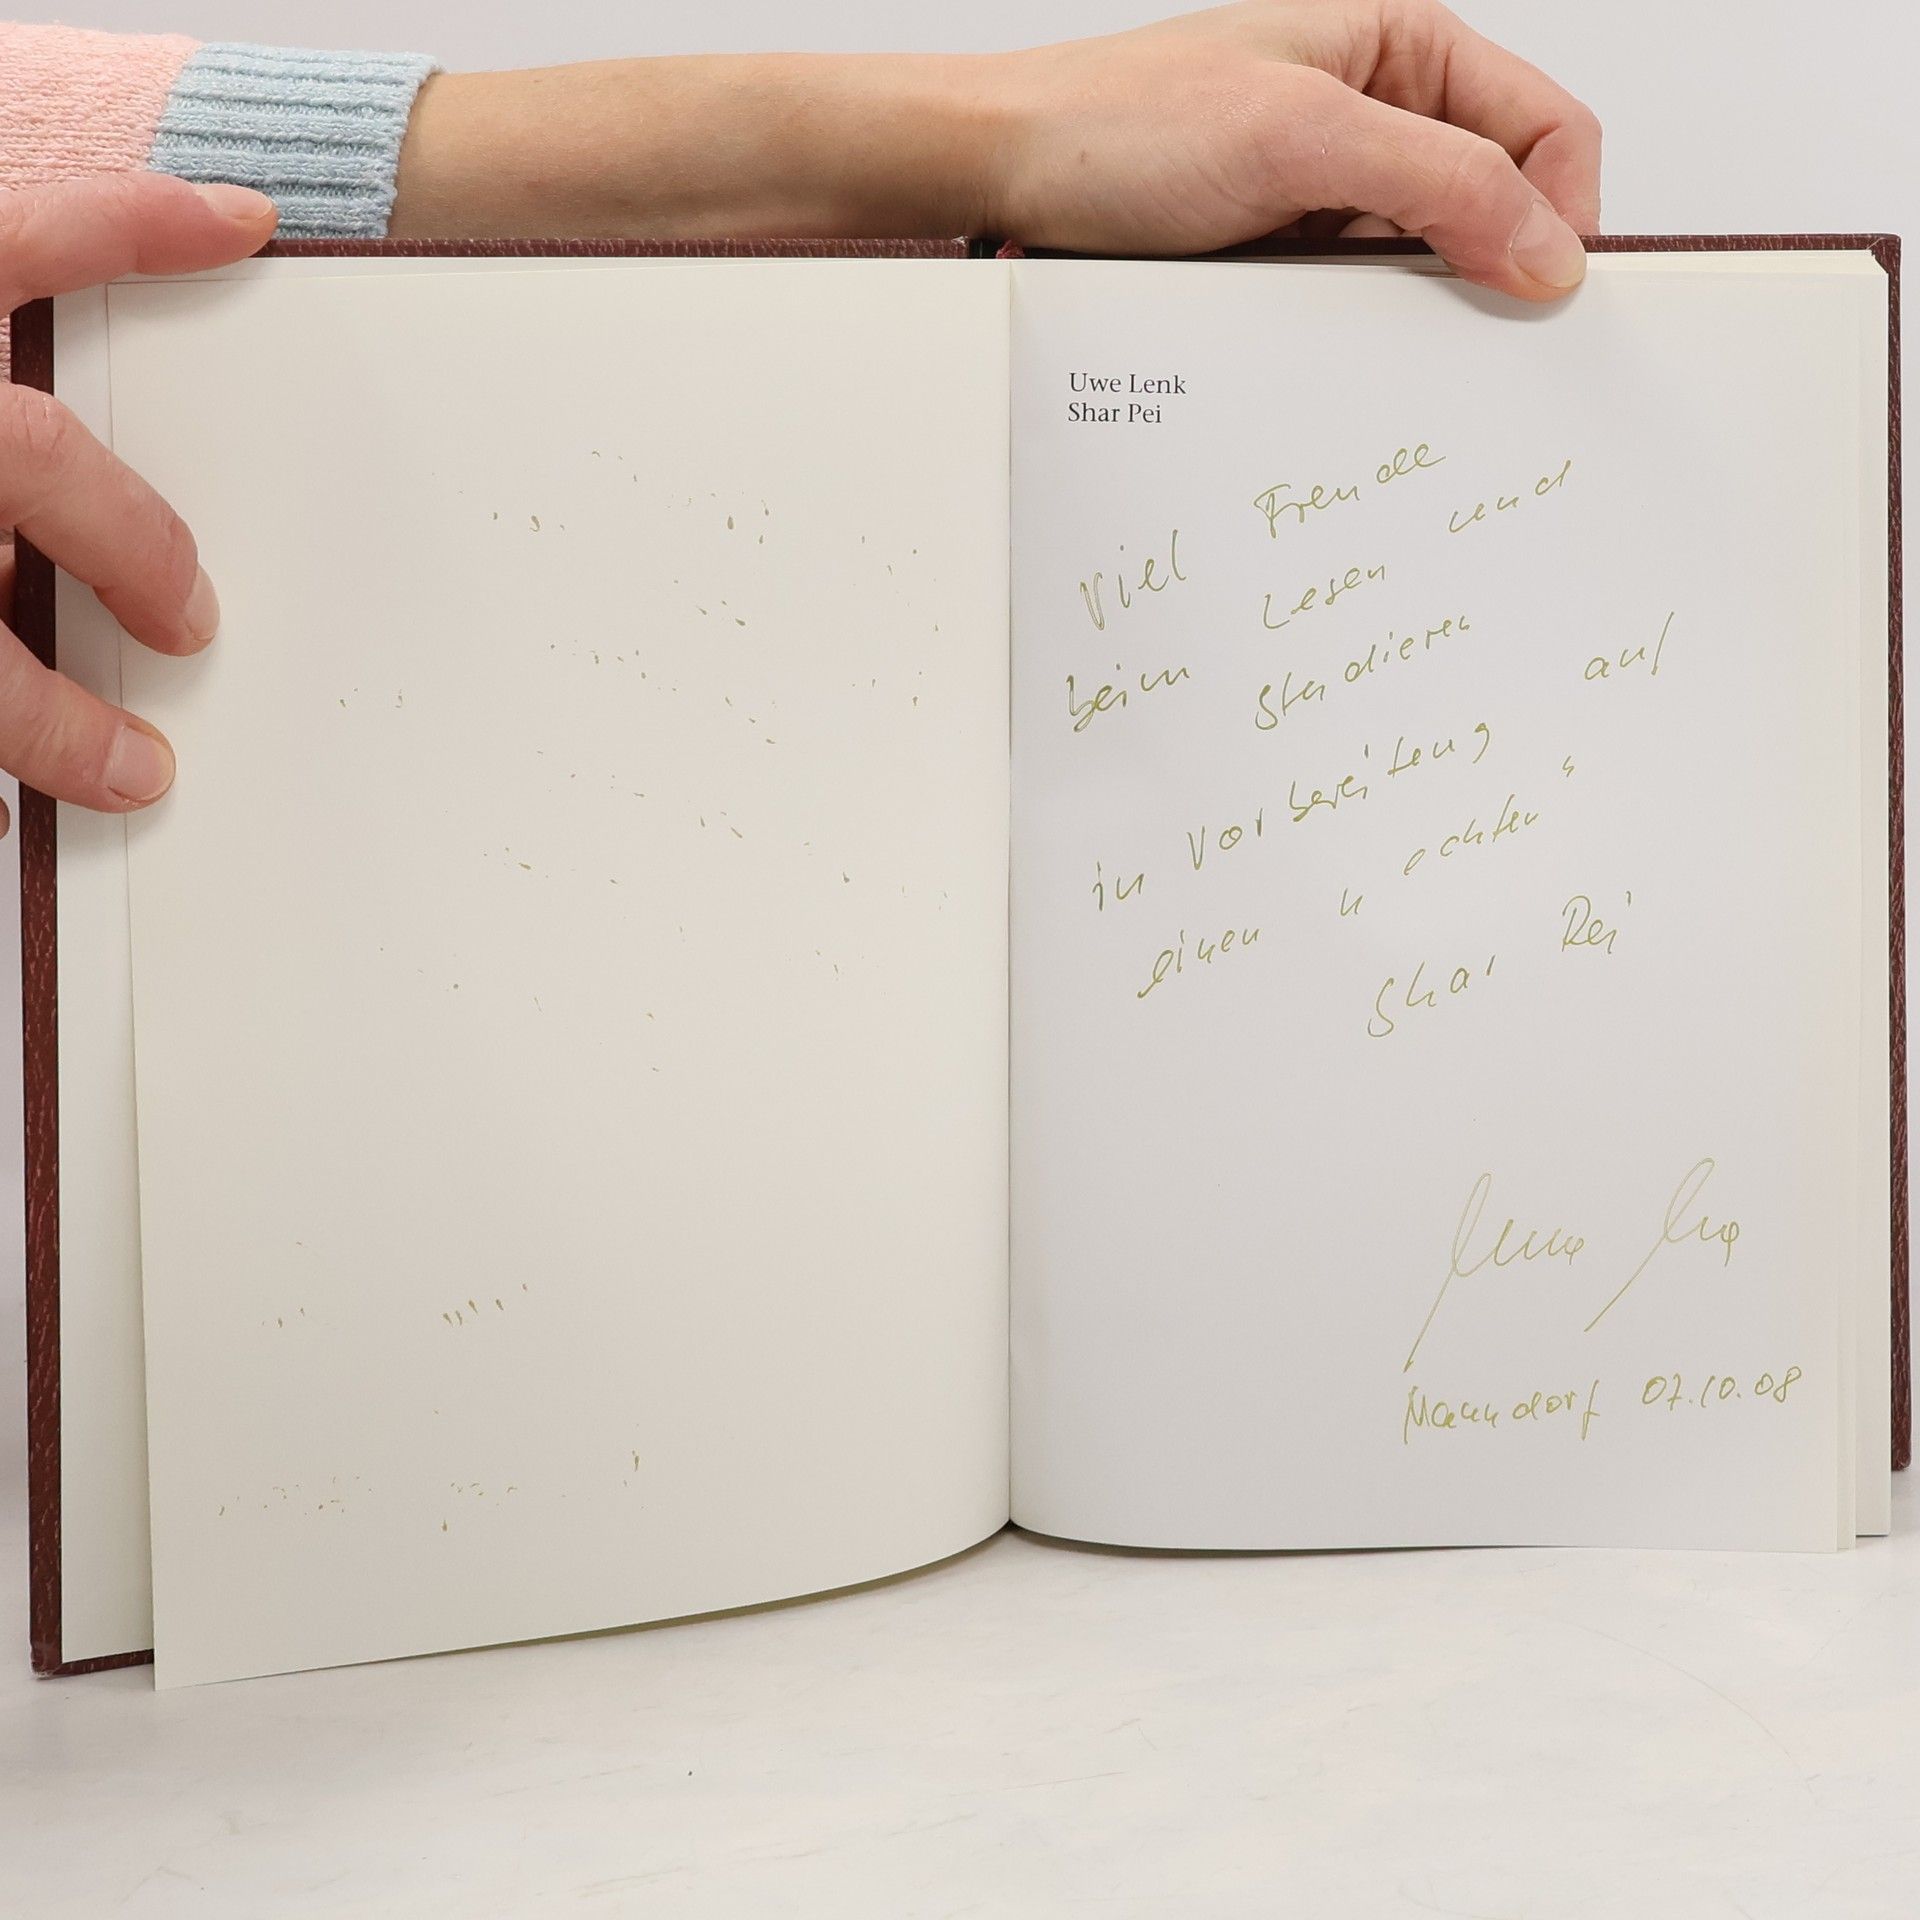 Uwe Lenk
Shar Pei
Viel Freude
beim Lesen und
Studieren
in Vorbereitung auf
einen "echten"
Shar Pei
Manndorf 07.10.08